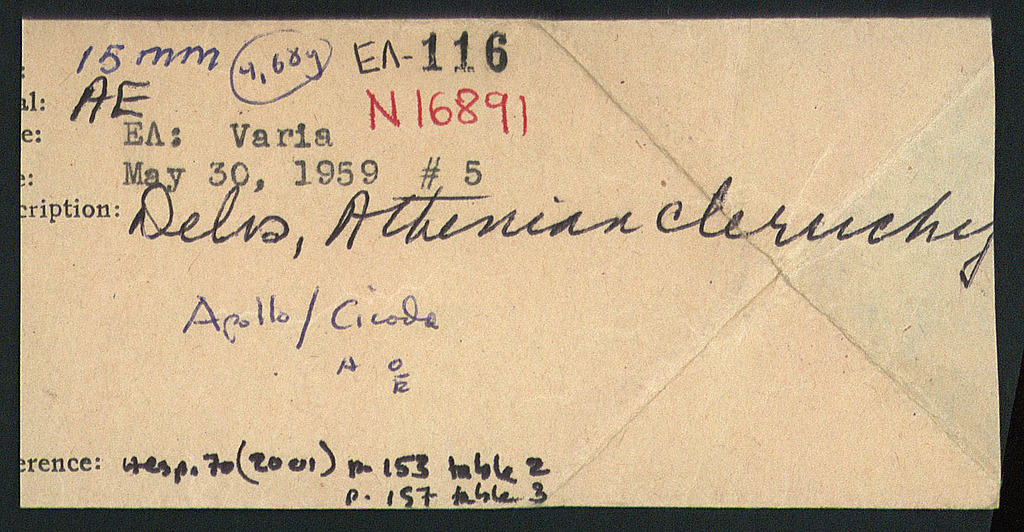 : 15 mm 4,68g ΕΛ-116
al: AE N16891
e: ΕΛ: Varia
e: May 30, 1959 # 5
cription: Delos, Athenian cleruchy
Apollo / Cicada
A Θ
E
erence: Hesp. 70 (2001) p. 153 table 2
p. 157 table 3